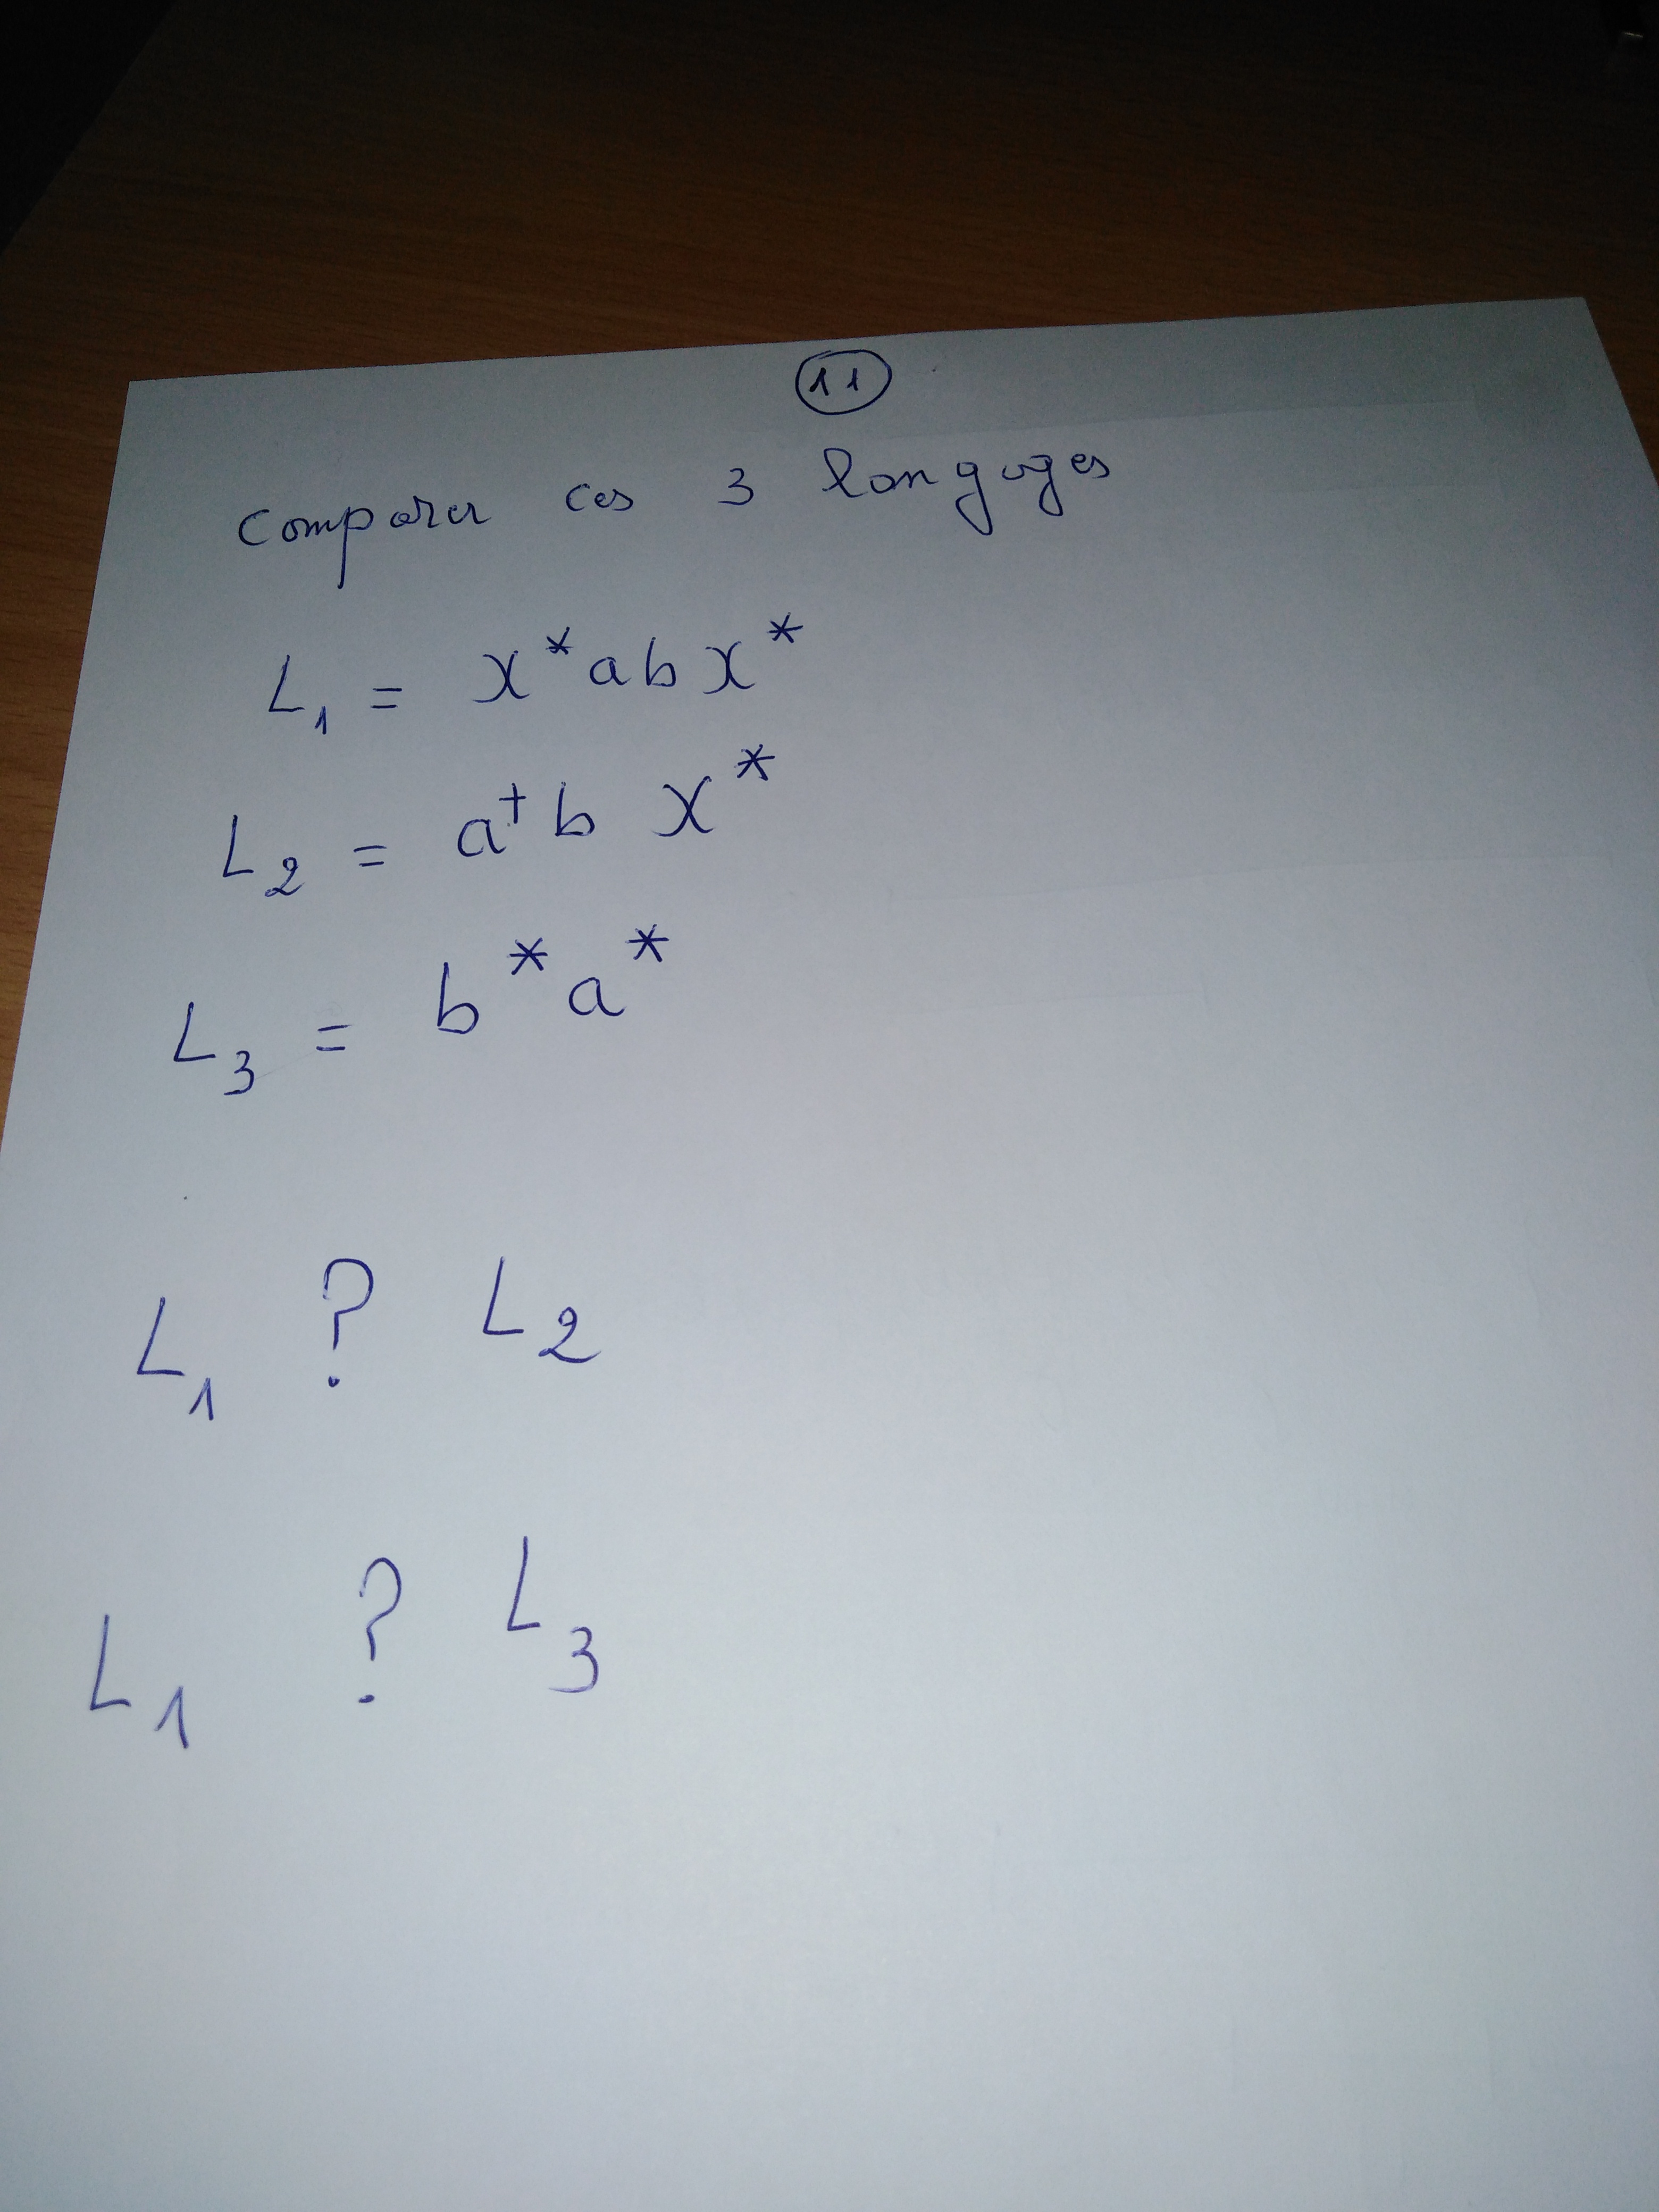 11
Comparer ces 3 langages
L₁ = x*abx*
L₂ = a⁺b x*
L₃ = b*a*
L₁ ? L₂
L₁ ? L₃